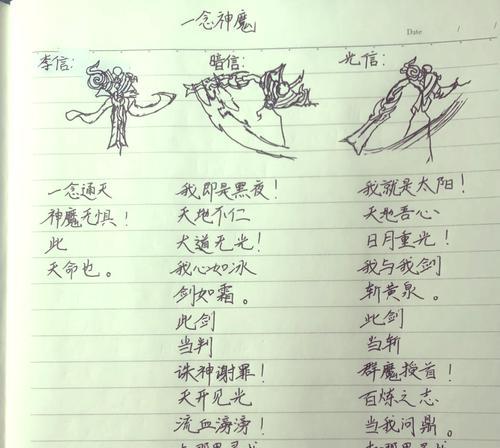 一念神魔
Date / /
李信:
一念通天
神魔无惧!
此
天命也。
暗信:
我即是黑夜!
天地不仁
大道无光!
我心如冰
剑如霜。
此剑
当判
诛神谢罪!
天开见光
流血滂滂!
光信:
我就是太阳!
天地吾心
日月重光!
我与我剑
斩黄泉。
此剑
当斩
群魔授首!
百炼之志
当我问鼎。